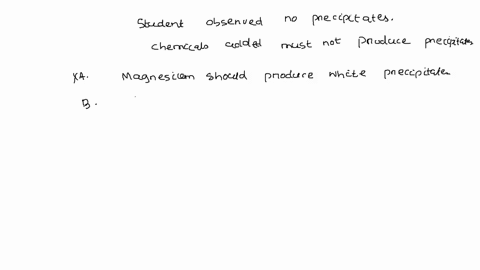 Student observed no precipitates.
chemicals added must not produce precipitates
XA. Magnesium should produce white precipitates
B.